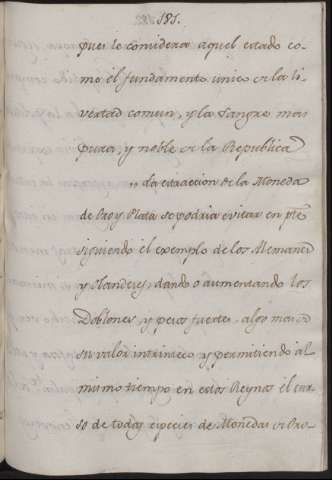 181.
pues se considera aquel estado co-
mo el fundamento unico de la li-
vertad comun, y la Sangre mas
pura, y noble de la Republica
,, La extraccion de la Moneda
de Oro y Plata se podria evitar en pte
siguiendo el exemplo de los Alemanes
y Flanderes, dando o aumentando los
Doblones, y pesos fuertes, algo mas
su valor intrinseco y permitiendo al
mismo tiempo en estos Reynos el cur-
so de todas especies de Monedas de Oro-